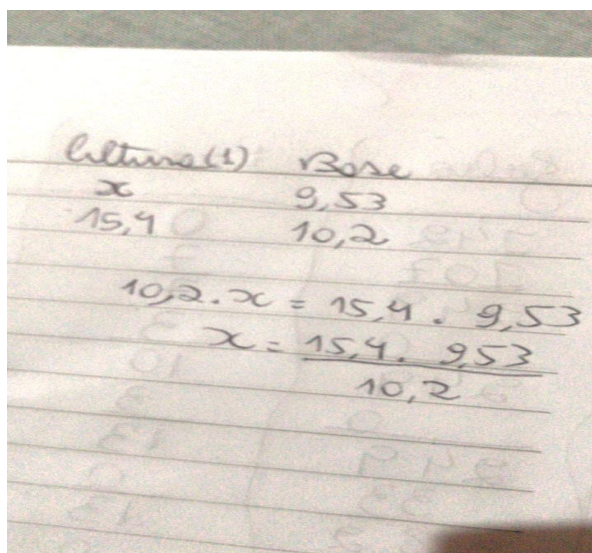 Altura(1) Base
x 9,53
15,4 10,2
10,2 . x = 15,4 . 9,53
x = 15,4 . 9,53
10,2